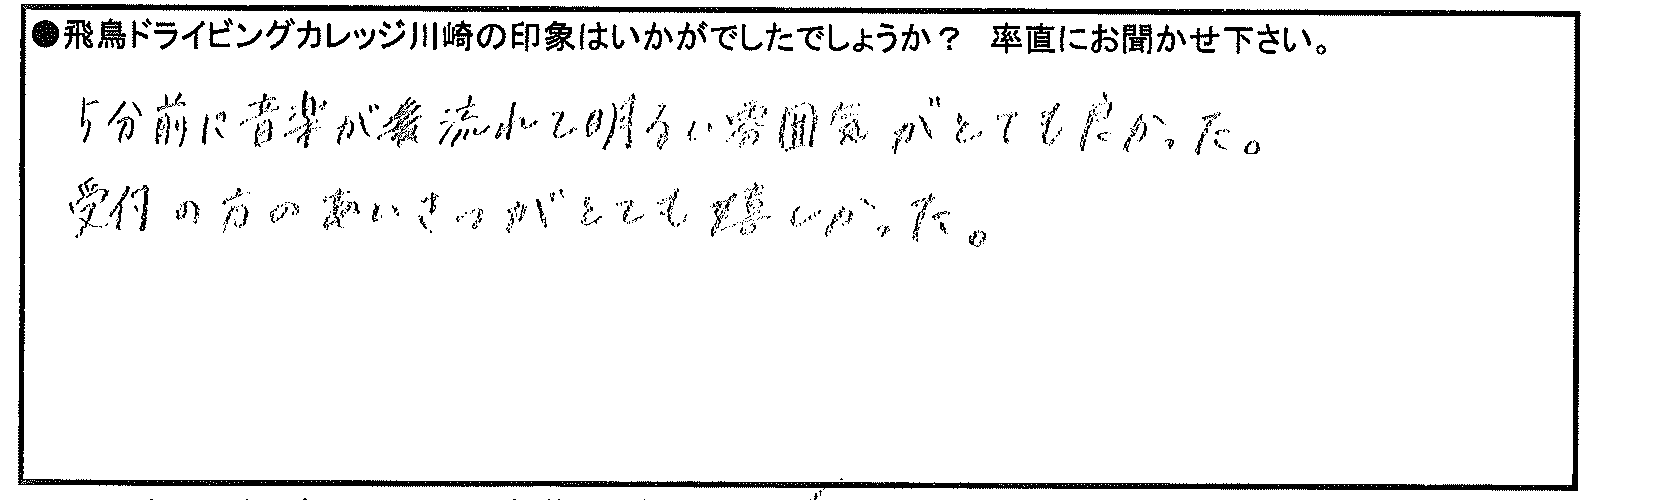 ●飛鳥ドライビングカレッジ川崎の印象はいかがでしたでしょうか？ 率直にお聞かせ下さい。
5分前に音楽が流れて明るい雰囲気がとても良かった。
受付の方のあいさつがとても嬉しかった。